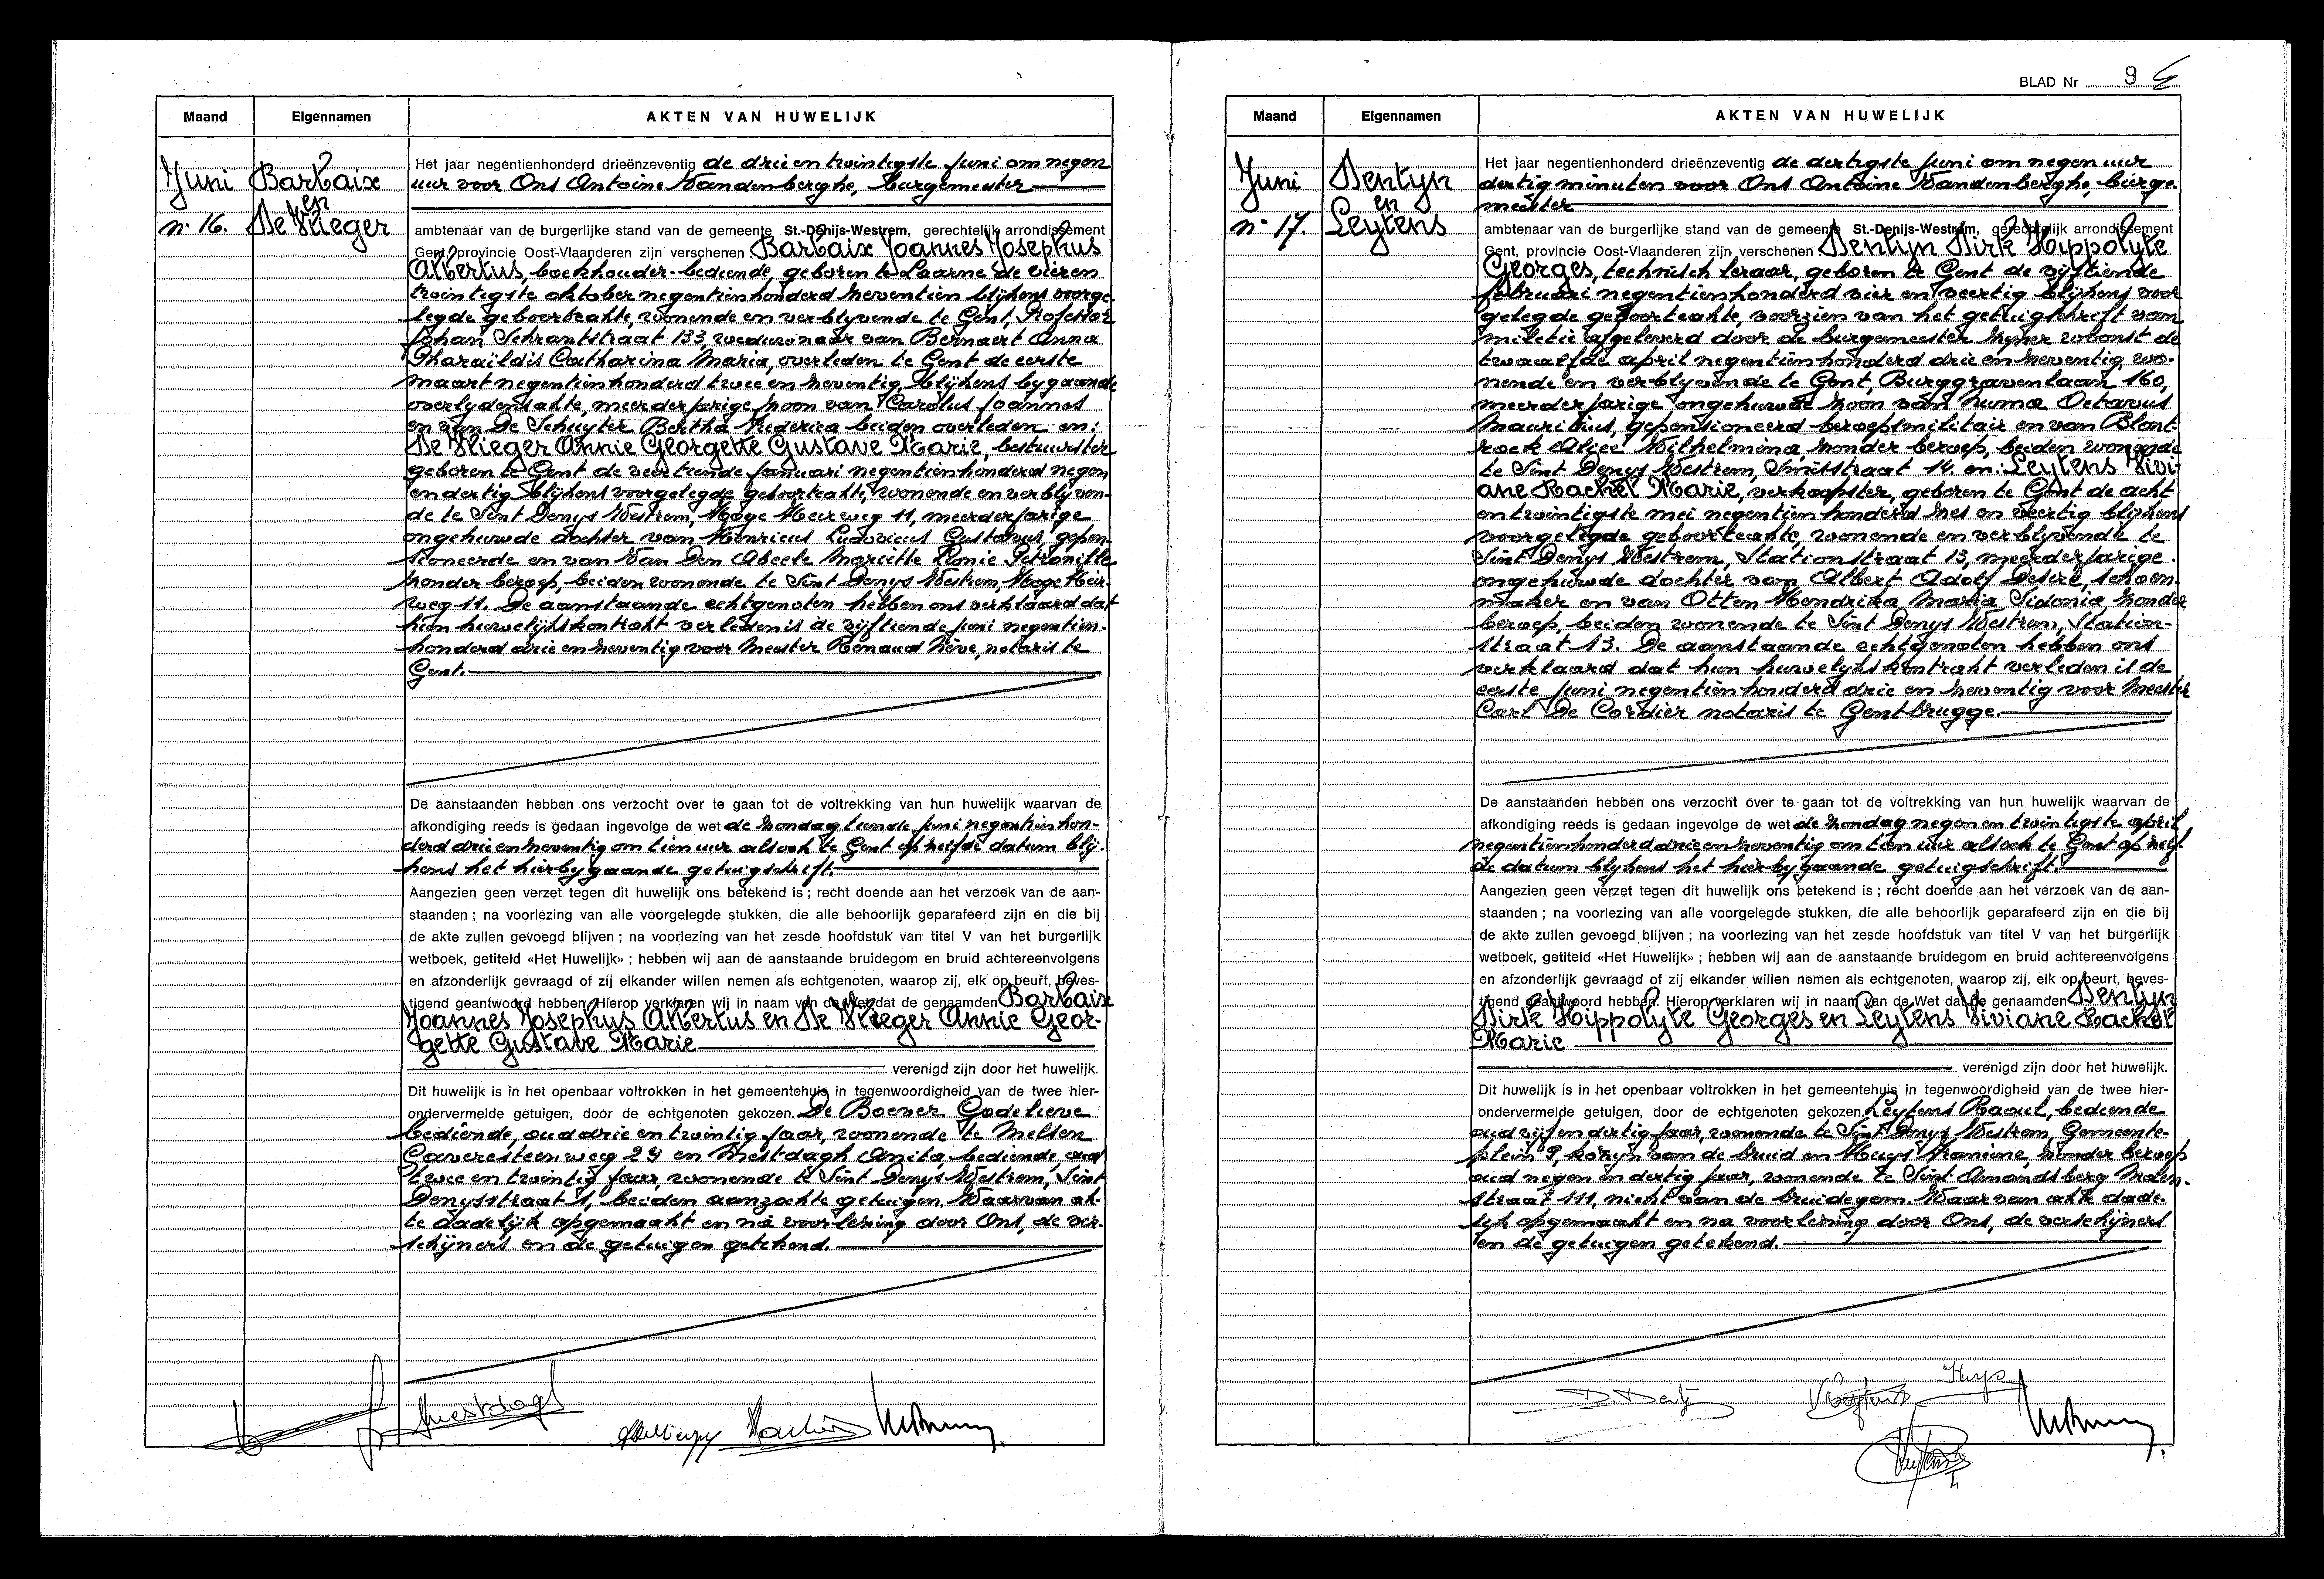 Maand Eigennamen AKTEN VAN HUWELIJK
Juni
n.16.
Barbaix
en
De Vlieger
Het jaar negentienhonderd drieënzeventig de drie en twintigste juni om negen
uur voor Ons Antoine Vandenberghe, burgemeester
ambtenaar van de burgerlijke stand van de gemeente St.-Denijs-Westrem, gerechtelijk arrondissement
Gent, provincie Oost-Vlaanderen zijn verschenen Barbaix Joannes Josephus
Albertus, boekhouder-bediende, geboren te Laarne de vier en
twintigste oktober negentienhonderd zeventien blijkens voorge-
legde geboorteakte, wonende en verblyvende te Gent, Professor
Johan Schrantstraat 133, weduwnaar van Bernaert Anna
Pharaïldis Catharina Maria, overleden te Gent de eerste
maart negentienhonderd twee en zeventig, blijkens bygaande
overlydensakte, meerderjarige zoon van Carolus Joannes
en van De Schuyter Bertha Frederica beiden overleden en:
De Vlieger Annie Georgette Gustave Marie, bestuurster
geboren te Gent de veertiende januari negentienhonderd negen
en dertig blijkens voorgelegde geboorteakte, wonende en verblyven-
de te Sint Denys Westrem, Hoge Heirweg 11, meerderjarige
ongehuwde dochter van Henricus Ludovicus Gustavus, gepen-
sioneerde en van Van Den Abeele Mariette Leonie Petronille
zonder beroep, beiden wonende te Sint Denys Westrem, Hoge Heir-
weg 11. De aanstaande echtgenoten hebben ons verklaard dat
hun huwelijkskontrakt verleden is de vijftiende juni negentien-
honderd drie en zeventig voor Meester Renaud Nève, notaris te
Gent.
De aanstaanden hebben ons verzocht over te gaan tot de voltrekking van hun huwelijk waarvan de
afkondiging reeds is gedaan ingevolge de wet de zondag tiende juni negentien hon-
derd drie en zeventig om tien uur alsook te Gent op zelfde datum blij-
kens het hierbygaande getuigschrift.
Aangezien geen verzet tegen dit huwelijk ons betekend is ; recht doende aan het verzoek van de aan-
staanden ; na voorlezing van alle voorgelegde stukken, die alle behoorlijk geparafeerd zijn en die bij
de akte zullen gevoegd blijven ; na voorlezing van het zesde hoofdstuk van titel V van het burgerlijk
wetboek, getiteld «Het Huwelijk» ; hebben wij aan de aanstaande bruidegom en bruid achtereenvolgens
en afzonderlijk gevraagd of zij elkander willen nemen als echtgenoten, waarop zij, elk op beurt, beves-
tigend geantwoord hebben. Hierop verklaren wij in naam van de Wet dat de genaamden Barbaix
Joannes Josephus Albertus en De Vlieger Annie Geor-
gette Gustave Marie
verenigd zijn door het huwelijk.
Dit huwelijk is in het openbaar voltrokken in het gemeentehuis in tegenwoordigheid van de twee hier-
ondervermelde getuigen, door de echtgenoten gekozen. De Boever Godelieve
bediende, oud drie en twintig jaar, wonende te Melsen
Caveresteenweg 29 en Mestdagh Anita, bediende, oud
twee en twintig jaar, wonende te Sint Denys Westrem, Sint
Denysstraat 1, beiden aanzochte getuigen. Waarvan ak-
te dadelijk opgemaakt en na voorlezing door Ons, de ver-
schijners en de getuigen getekend.
Mestdagh
BLAD Nr 9
Maand Eigennamen AKTEN VAN HUWELIJK
Juni
n.17.
Dentyn
en
Leytens
Het jaar negentienhonderd drieënzeventig de dertigste juni om negen uur
dertig minuten voor Ons Antoine Vandenberghe, burge-
meester
ambtenaar van de burgerlijke stand van de gemeente St.-Denijs-Westrem, gerechtelijk arrondissement
Gent, provincie Oost-Vlaanderen zijn verschenen Dentyn Dirk Hippolyte
Georges, technisch leraar, geboren te Gent de vijftiende
februari negentienhonderd vier en veertig blijkens voor
gelegde geboorteakte, voorzien van het getuigschrift van
militie afgeleverd door de burgemeester zijner woonst de
twaalfde april negentienhonderd drie en zeventig, wo-
nende en verblyvende te Gent, Burggravenlaan 160,
meerderjarige ongehuwde zoon van Numa Octavus
Mauritius, gepensioneerd beroepsmilitair en van Blont-
rock Alice Wilhelmina, zonder beroep, beiden wonende
te Sint Denys Westrem, Smitstraat 14 en: Leytens Vivi-
ane Rachel Marie, verkoopster, geboren te Gent de acht
en twintigste mei negentienhonderd zes en veertig blijkens
voorgelegde geboorteakte, wonende en verblyvende te
Sint Denys Westrem, Stationstraat 13, meerderjarige
ongehuwde dochter van Albert Adolf Desiré, schoen-
maker en van Otten Hendrika Maria Sidonia zonder
beroep, beiden wonende te Sint Denys Westrem, Station-
straat 13. De aanstaande echtgenoten hebben ons
verklaard dat hun huwelijkskontrakt verleden is de
eerste juni negentienhonderd drie en zeventig voor Meester
Carl De Cordier notaris te Gentbrugge.
De aanstaanden hebben ons verzocht over te gaan tot de voltrekking van hun huwelijk waarvan de
afkondiging reeds is gedaan ingevolge de wet de zondag negen en twintigste april
negentienhonderd drie en zeventig om tien uur alsook te Gent op zelf-
de datum blijkens het hierbijgaande getuigschrift.
Aangezien geen verzet tegen dit huwelijk ons betekend is ; recht doende aan het verzoek van de aan-
staanden ; na voorlezing van alle voorgelegde stukken, die alle behoorlijk geparafeerd zijn en die bij
de akte zullen gevoegd blijven ; na voorlezing van het zesde hoofdstuk van titel V van het burgerlijk
wetboek, getiteld «Het Huwelijk» ; hebben wij aan de aanstaande bruidegom en bruid achtereenvolgens
en afzonderlijk gevraagd of zij elkander willen nemen als echtgenoten, waarop zij, elk op beurt, beves-
tigend geantwoord hebben. Hierop verklaren wij in naam van de Wet dat de genaamden Dentyn
Dirk Hippolyte Georges en Leytens Viviane Rachel
Marie
verenigd zijn door het huwelijk.
Dit huwelijk is in het openbaar voltrokken in het gemeentehuis in tegenwoordigheid van de twee hier-
ondervermelde getuigen, door de echtgenoten gekozen. Leytens Raoul, bediende
oud vijf en dertig jaar, wonende te Sint Denys Westrem, Gemeente-
plein 9, kozijn van de bruid en Huys Francine, zonder beroep
oud negen en dertig jaar, wonende te Sint Amandsberg Molen-
straat 111, nicht van de bruidegom. Waarvan akte dade-
lijk opgemaakt en na voorlezing door Ons, de verschijners
en de getuigen getekend.
Huys